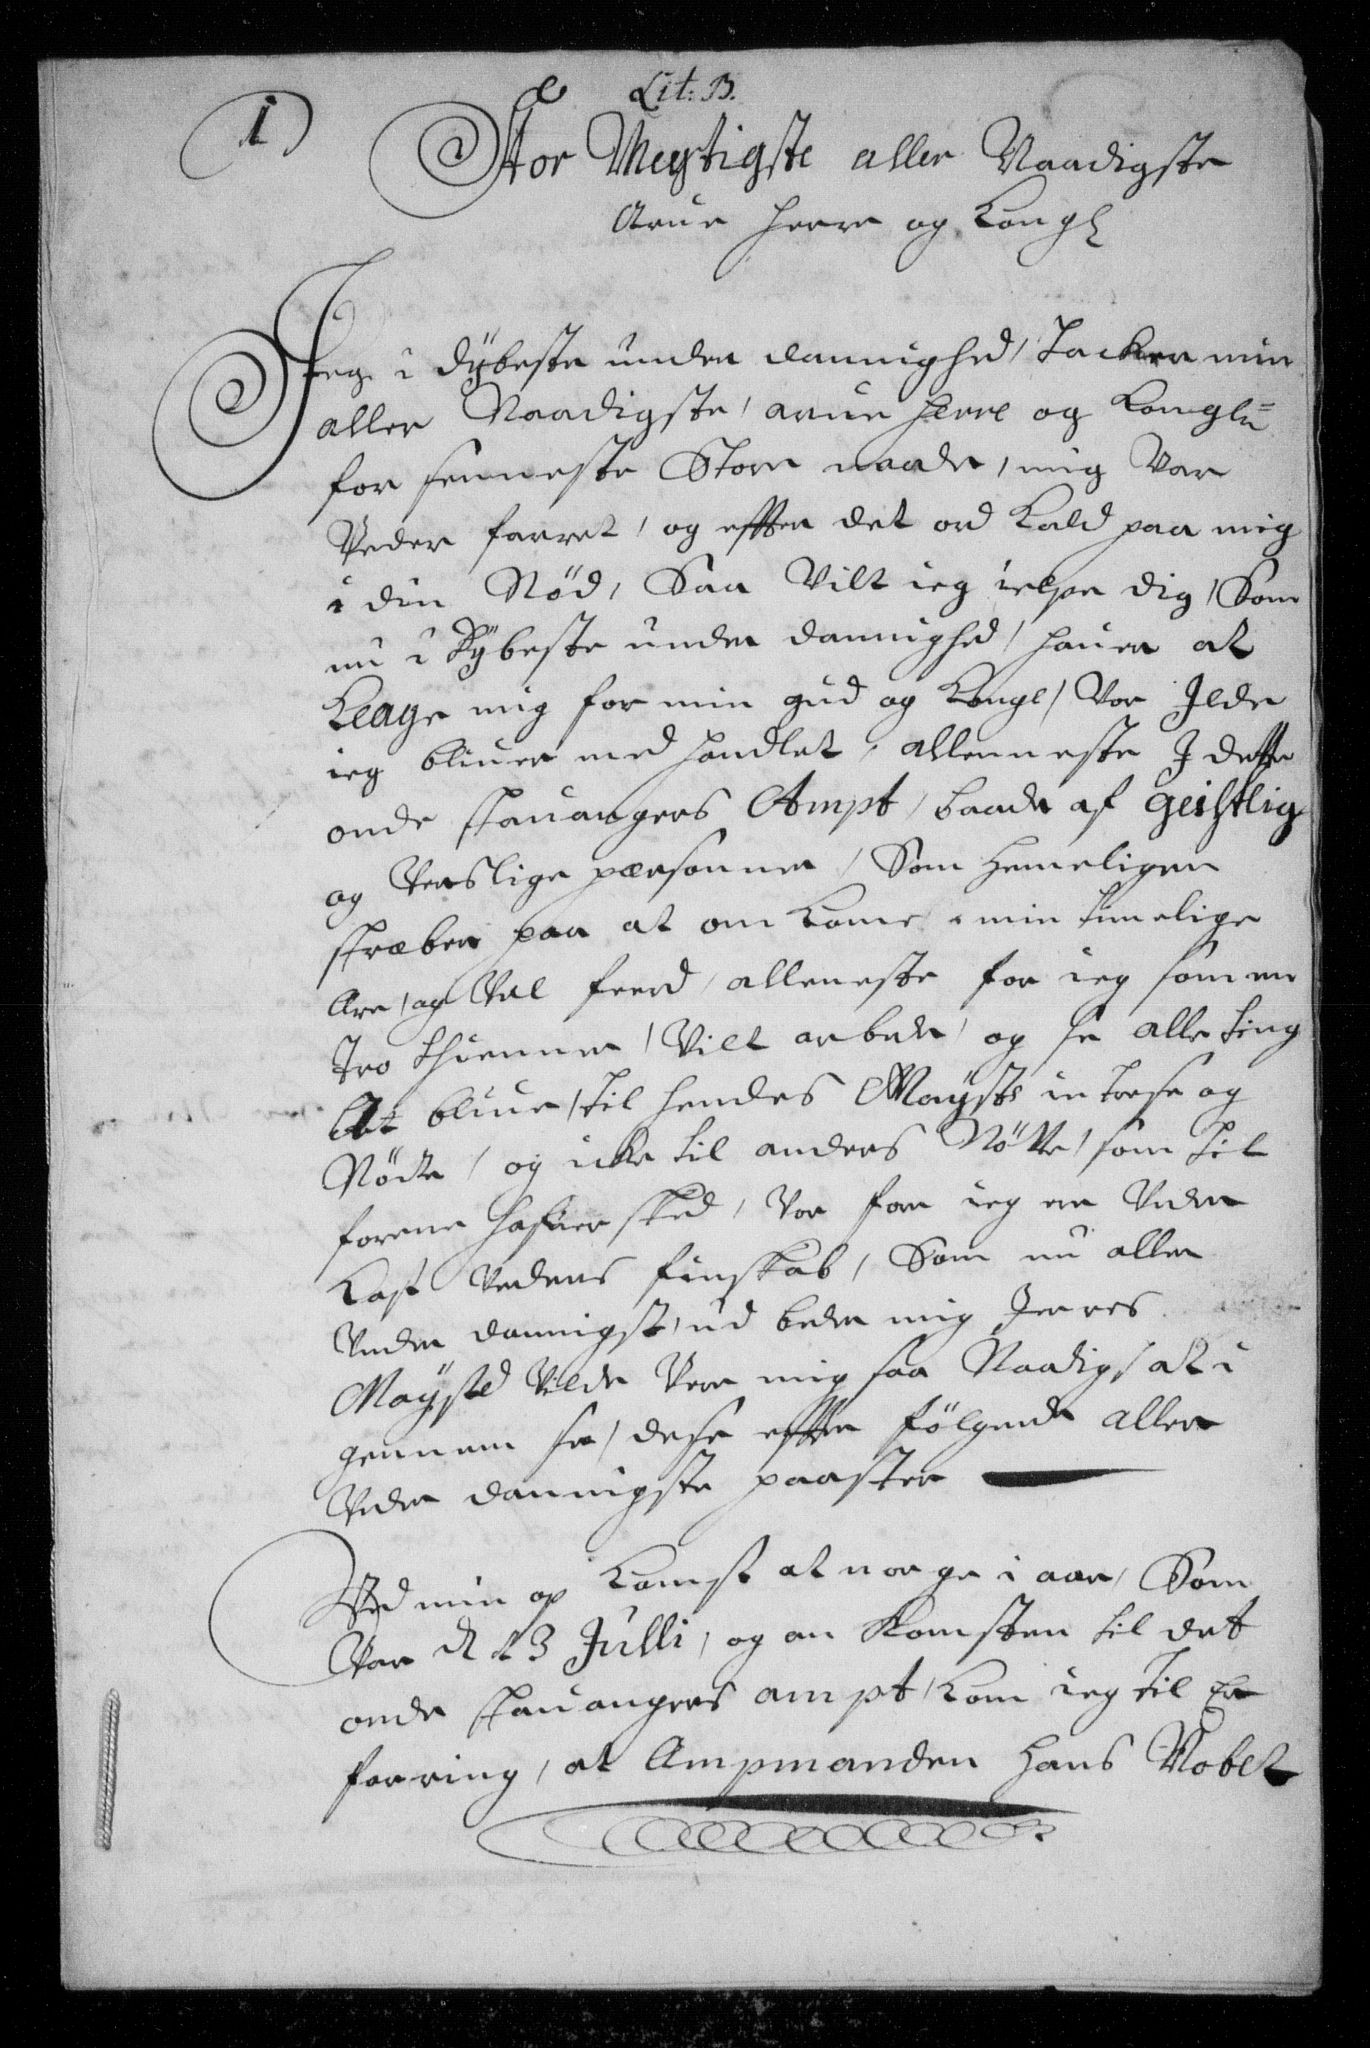 Lit: B.
1
Stor Megtigste aller Naadigste
Arue Herre og Kongl
Jeg i dÿbeste under dannighed, Tacker min
aller Naadigste, arue Herre og Konglr=
for seneste Store naade, mig Var
Veder farret, og effter det ord Kald paa mig
i din Nöd, Saa Vilt ieg ielpe dig, Som
nu i Dÿbeste under dannighed, hauer at
Klage mig for min gud og Konge, Vor Ilde
ieg bliuer med handlet, allenneste I dette
onde stauangers Ampt, baade af geistlig
og Verslige personner, Som hemeligen
stræber paa at om kome, min timelige
Ære, og Vel ferd, alleneste for ieg som en
Tro thienner, Vilt arbede, og se alle ting
At bliue, til hendes Maÿsts intrese og
Nöde, og icke til anders Nötte, som til
foren hafuer sked, Vor for ieg er Under
Kast Verdens finskab, Som nu aller
Under dannigst, ud beder mig Jerres
Maÿstd Vilde Vere mig saa Naadigst at i
gennem se, dese effter fölgende aller
Under dannigste paaster
Ved min op Komst at norge i aar, Som
Var d 13 Julli, og an Komsten til det
onde stauangers ampt, kom ieg til Er
farring, at Ampmanden Hans Nobel